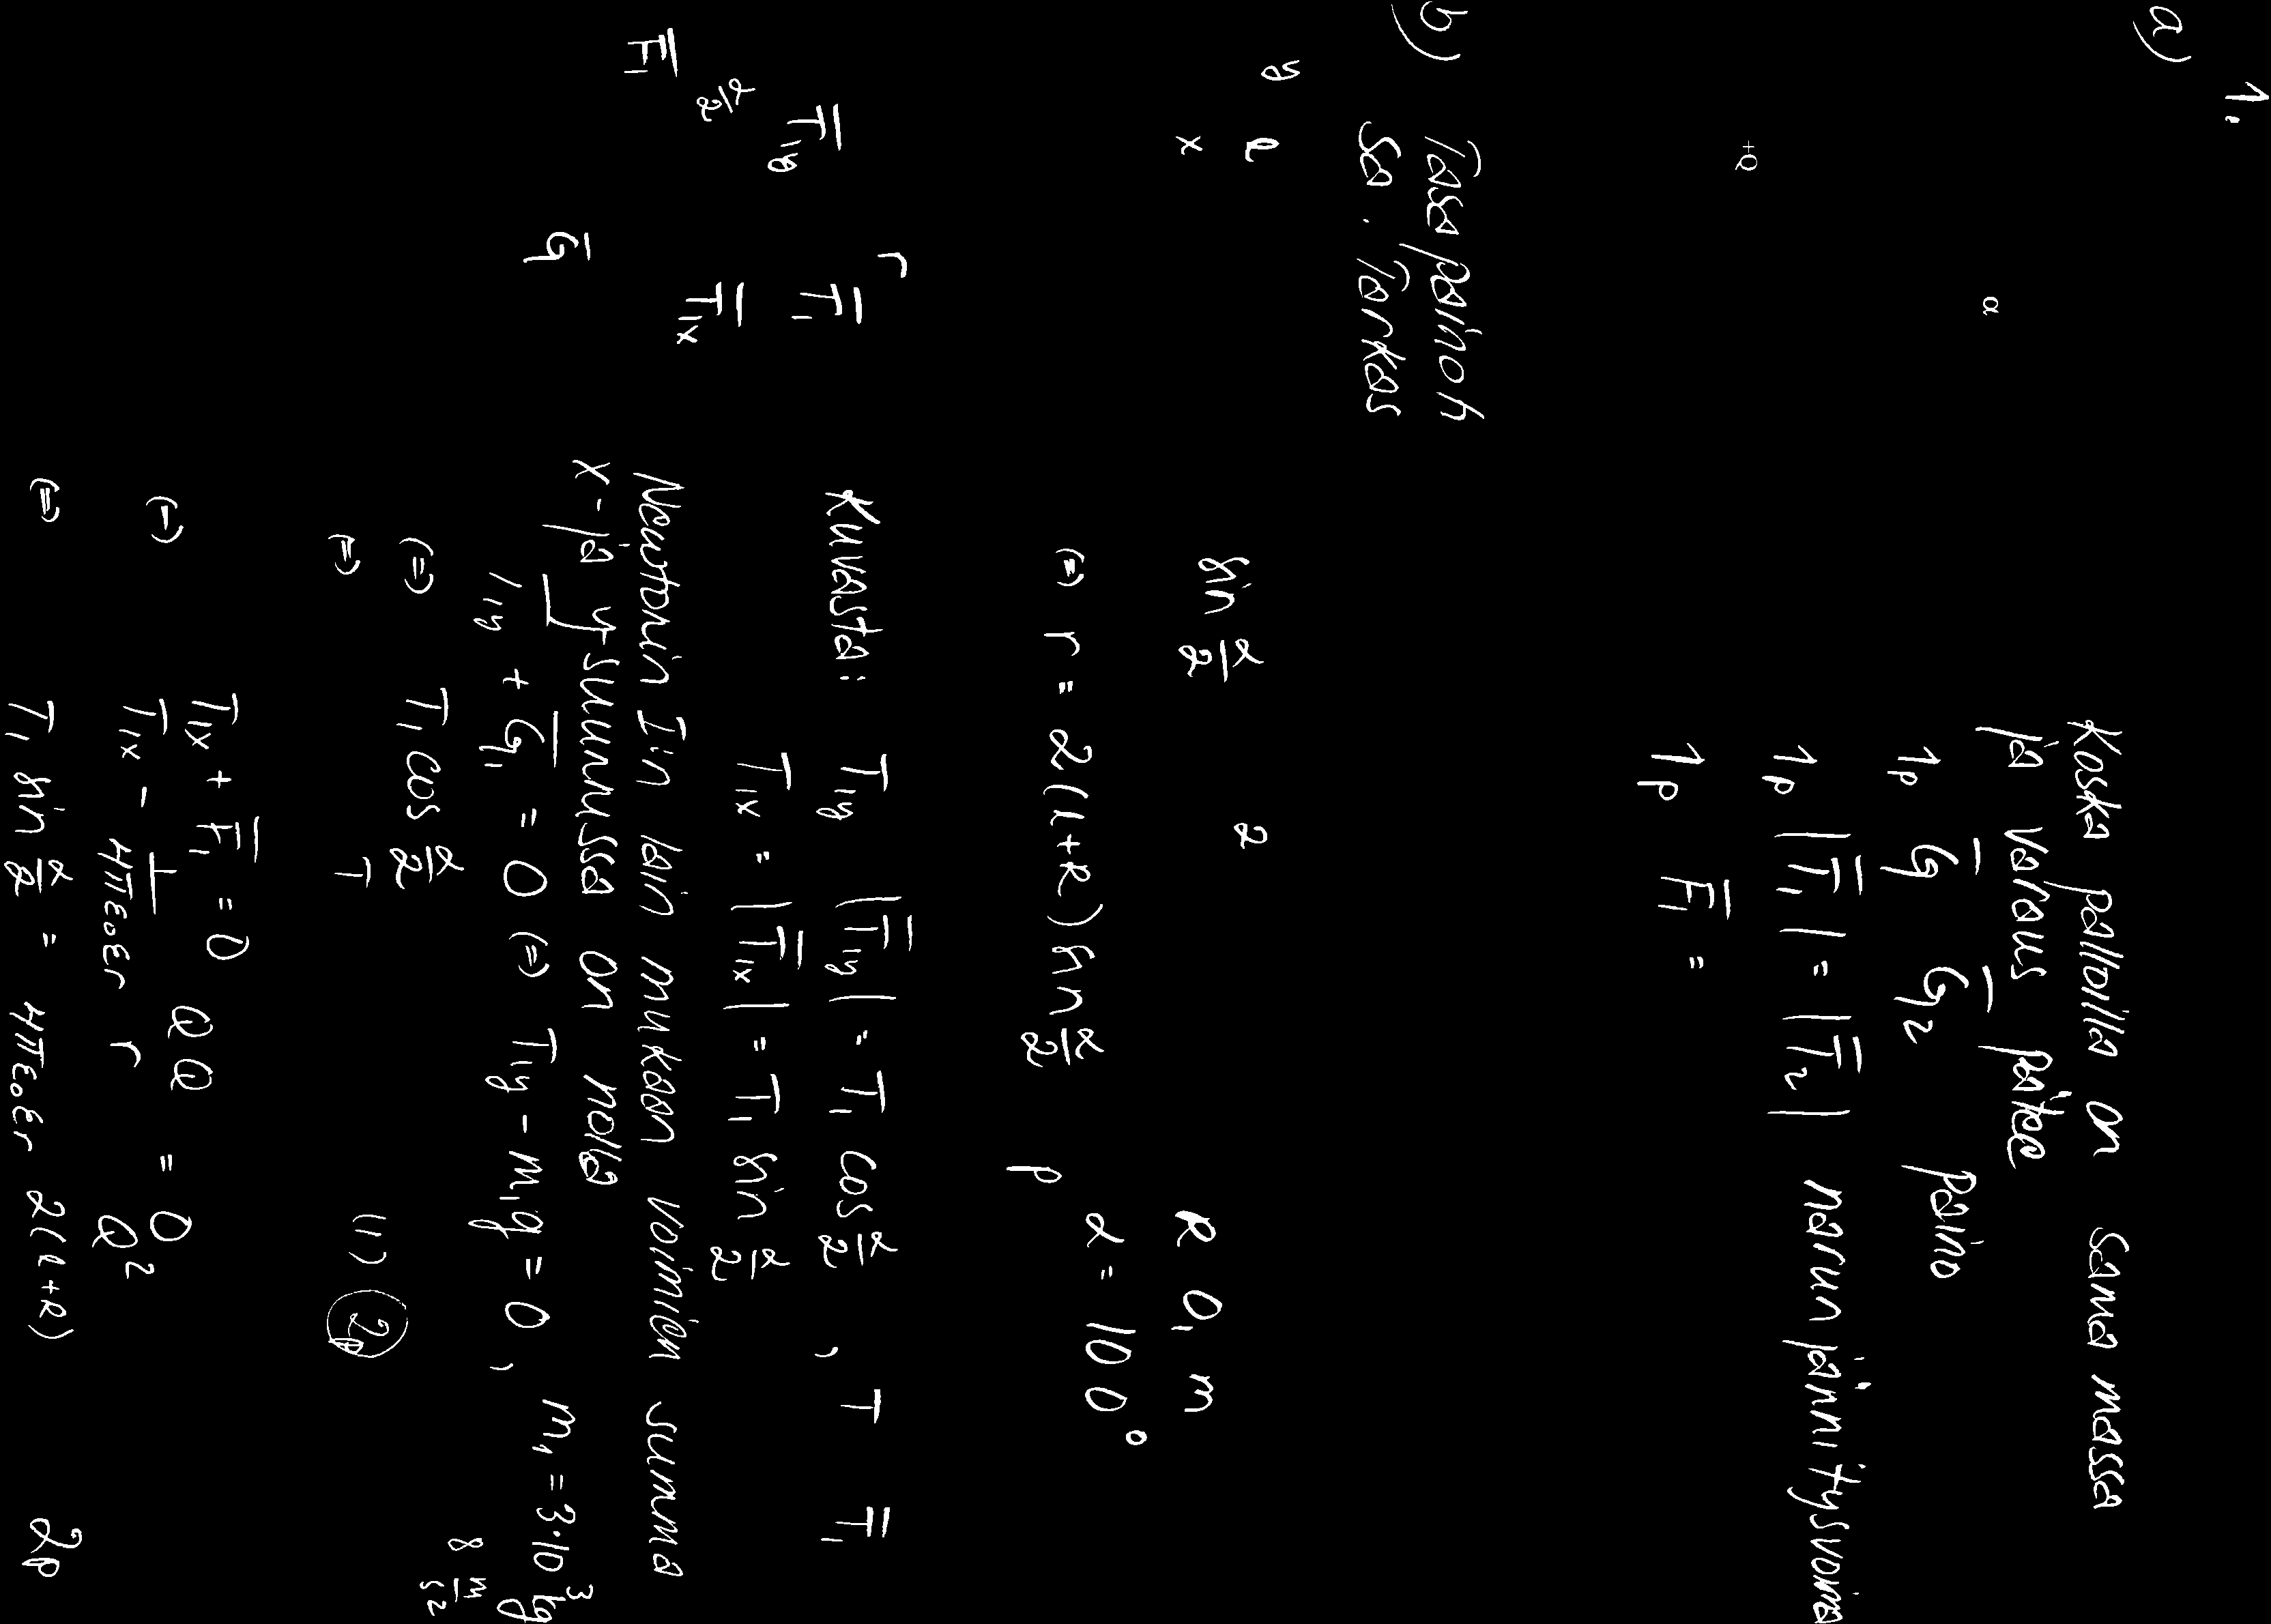 1.
a)
α
+Q
Koska palloilla on sama massa
ja varaus pätee
1p G̅ G̅₂ paino
1p |T̅₁| = |T̅₂| narun jännitysvoima
1p F̅₁ =
b) Tasapainoh
sa. Tarkas
y
x
sin α/2 2 R 0, m
(=) r = 2(l+R) sin α/2 α = 10 0°
r
T̅₁
T̅₁y
T̅₁x
α/2
F̅₁
G̅
Kuvasta: T₁y |T̅₁y| = T₁ cos α/2 , T T̅₁
T₁x = |T̅₁x| = T₁ sin α/2
Newtonin I:n lain mukaan voimien summa
x- ja y-suunnussa on nolla
T̅₁y + G̅₁ = 0 (=) T₁y - m₁g = 0, m₁ = 3·10³ kg
(=) T₁ cos α/2 8 m/s²
(=) T (1) 2p
T̅₁x + F̅₁ = 0
(=) T₁x - 1/4πε₀εr QQ/r = 0
(=) T₁ sin α/2 = Q²/4πε₀εr 2(l+R) 2p